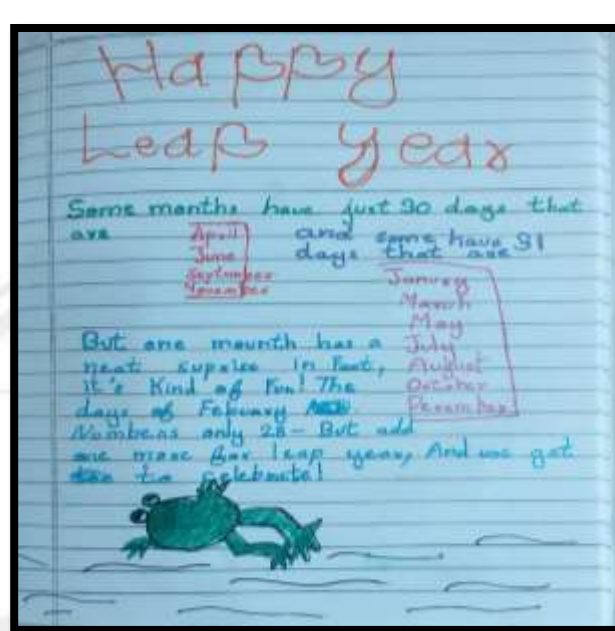 Happy
Leap year
Some months have just 30 days that
are
April
June
September
November
and some have 31
days that are
Janurey
March
May
July
August
October
December
But one mounth has a
neat suprise In Fact,
it's Kind of Fun! The
days of Febuary
Numbers only 28 - But add
one more for leap year, And we get
to celebrate!